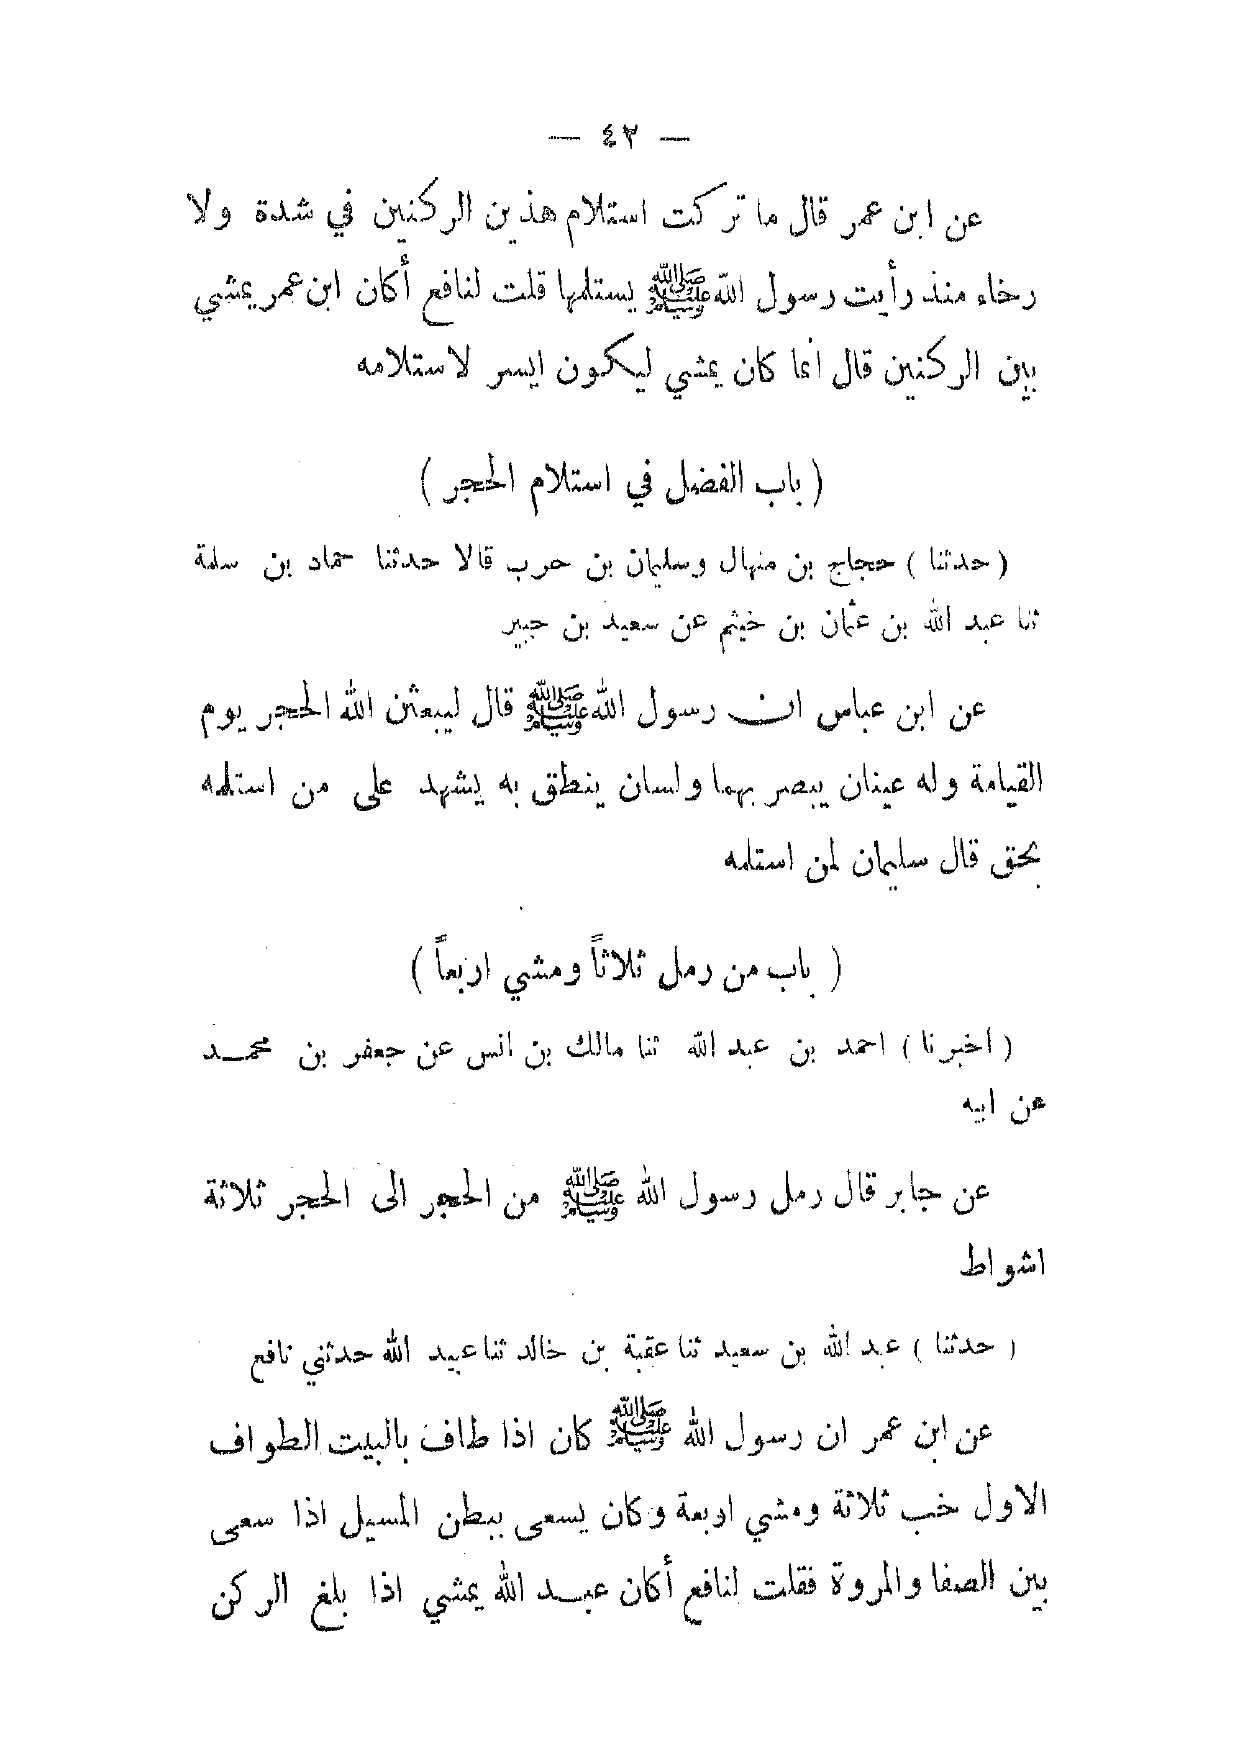 — ٤٢ —
عن ابن عمر قال ما تركت استلام هذين الركنين في شدة ولا
رخاء منذ رأيت رسول الله ﷺ يستلمها قلت لنافع أكان ابن عمر يمشي
بين الركنين قال انما كان يمشي ليكون ايسر لاستلامه
( باب الفضل في استلام الحجر )
( حدثنا ) حجاج بن منهال وسليمان بن حرب قالا حدثنا حماد بن سلمة
ثنا عبد الله بن عثمان بن خيثم عن سعيد بن جبير
عن ابن عباس ان رسول الله ﷺ قال ليبعثن الله الحجر يوم
القيامة وله عينان يبصر بهما ولسان ينطق به يشهد على من استلمه
بحق قال سليمان لمن استلمه
( باب من رمل ثلاثاً ومشي اربعاً )
( اخبرنا ) احمد بن عبد الله ثنا مالك بن انس عن جعفر بن محمد
عن ابيه
عن جابر قال رمل رسول الله ﷺ من الحجر الى الحجر ثلاثة
اشواط
( حدثنا ) عبد الله بن سعيد ثنا عقبة بن خالد ثنا عبيد الله حدثني نافع
عن ابن عمر ان رسول الله ﷺ كان اذا طاف بالبيت الطواف
الاول خب ثلاثة ومشي اربعة وكان يسعى ببطن المسيل اذا سعى
بين الصفا والمروة فقلت لنافع أكان عبد الله يمشي اذا بلغ الركن